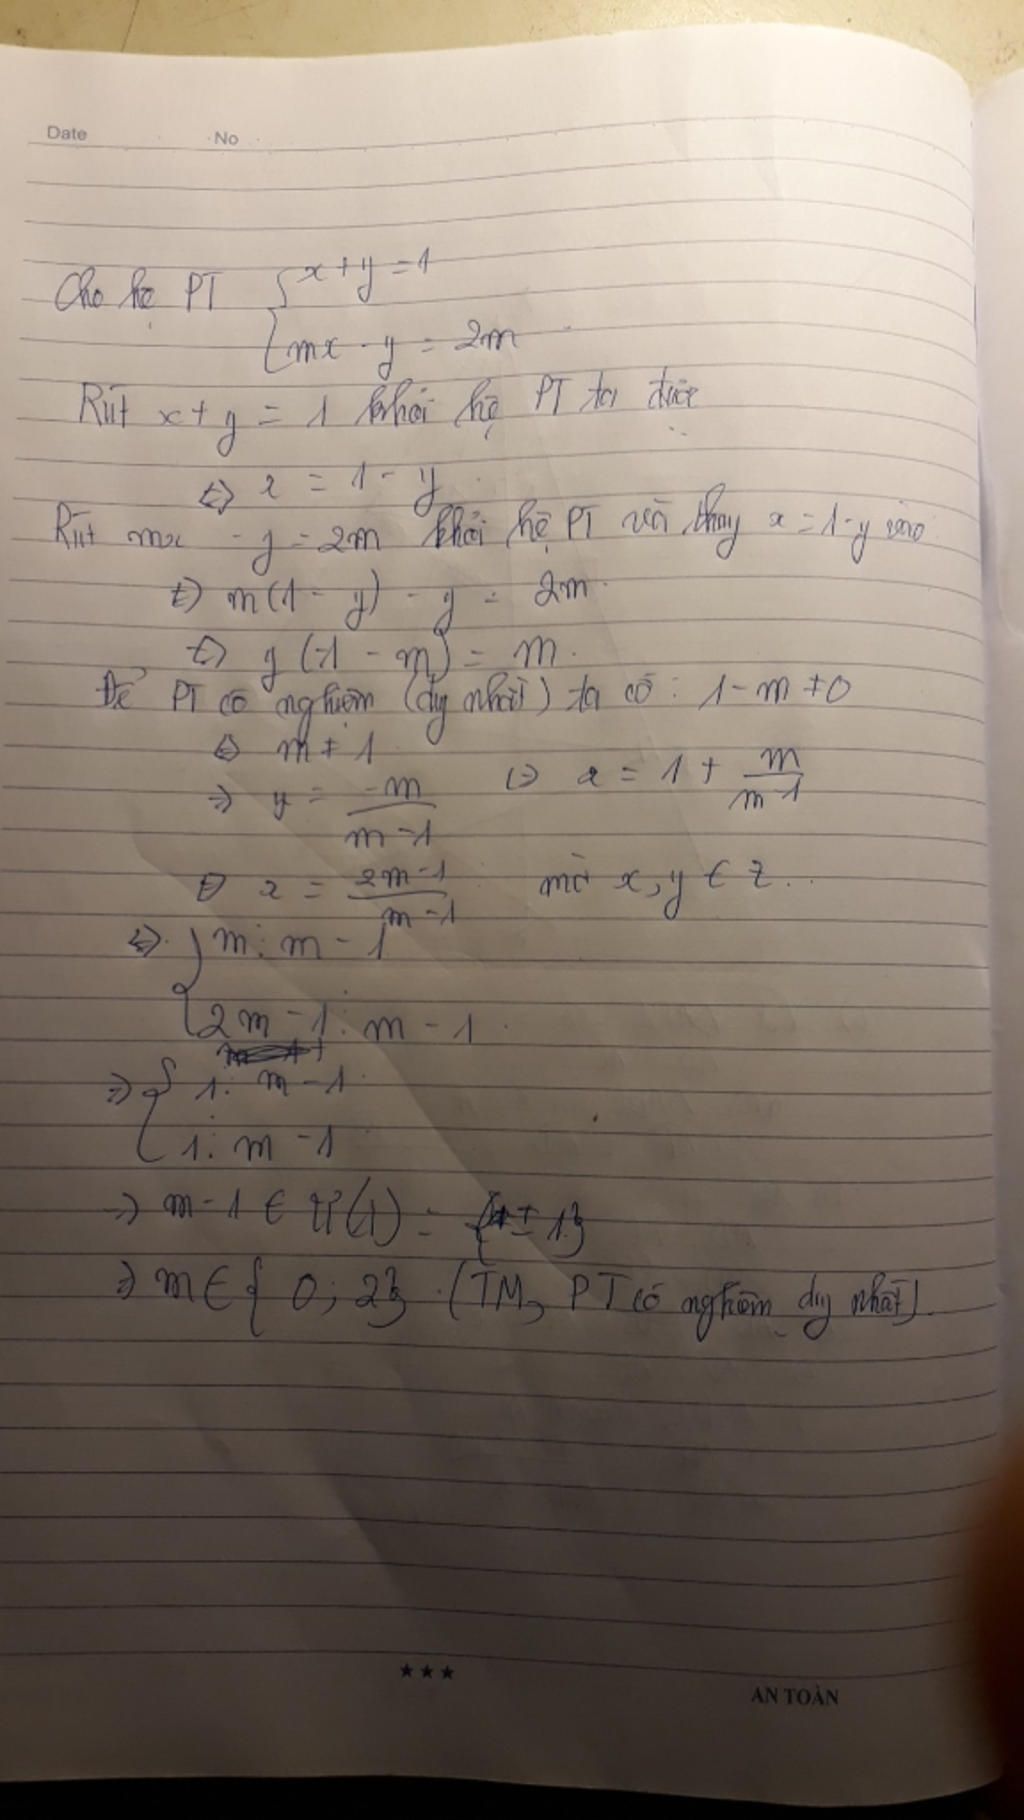 Date No
Cho hệ PT { x + y = 1
mx - y = 2m
Rút x + y = 1 khỏi hệ PT ta được
<=> x = 1 - y
Rút mx - y = 2m khỏi hệ PT và thay x = 1 - y vào
<=> m(1 - y) - y = 2m
<=> y(-1 - m) = m
Để PT có nghiệm (duy nhất) ta có: 1 - m ≠ 0
<=> m ≠ 1
=> y = -m / m - 1 <=> x = 1 + m / m - 1
<=> x = 2m - 1 / m - 1 mà x, y ∈ Z
<=> { m ⋮ m - 1
2m - 1 ⋮ m - 1
=> { 1 ⋮ m - 1
1 ⋮ m - 1
=> m - 1 ∈ Ư(1) = { ± 1 }
=> m ∈ { 0; 2 } (TM, PT có nghiệm duy nhất)
★★★
AN TOÀN